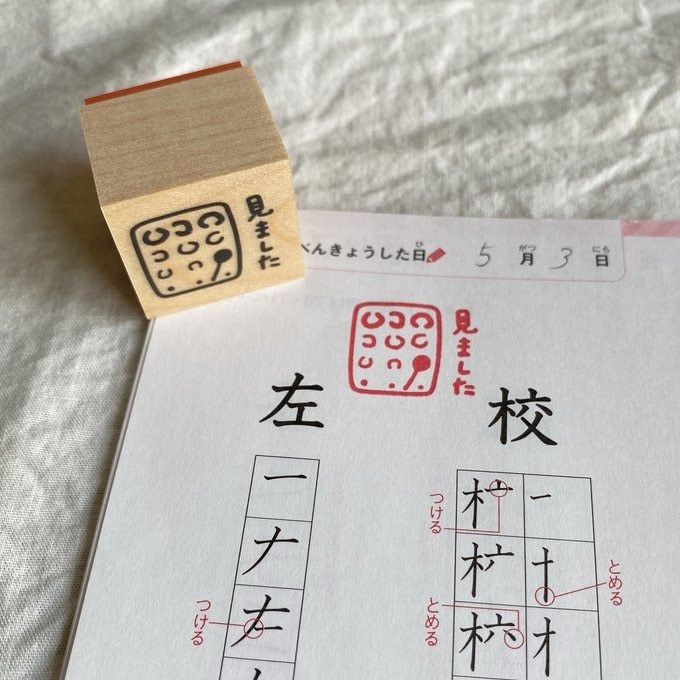 見ました
べんきょうした日
ひ
5月3日
がつ
にち
見ました
校
一
十
オ
とめる
つける
とめる
左
一
ナ
つける